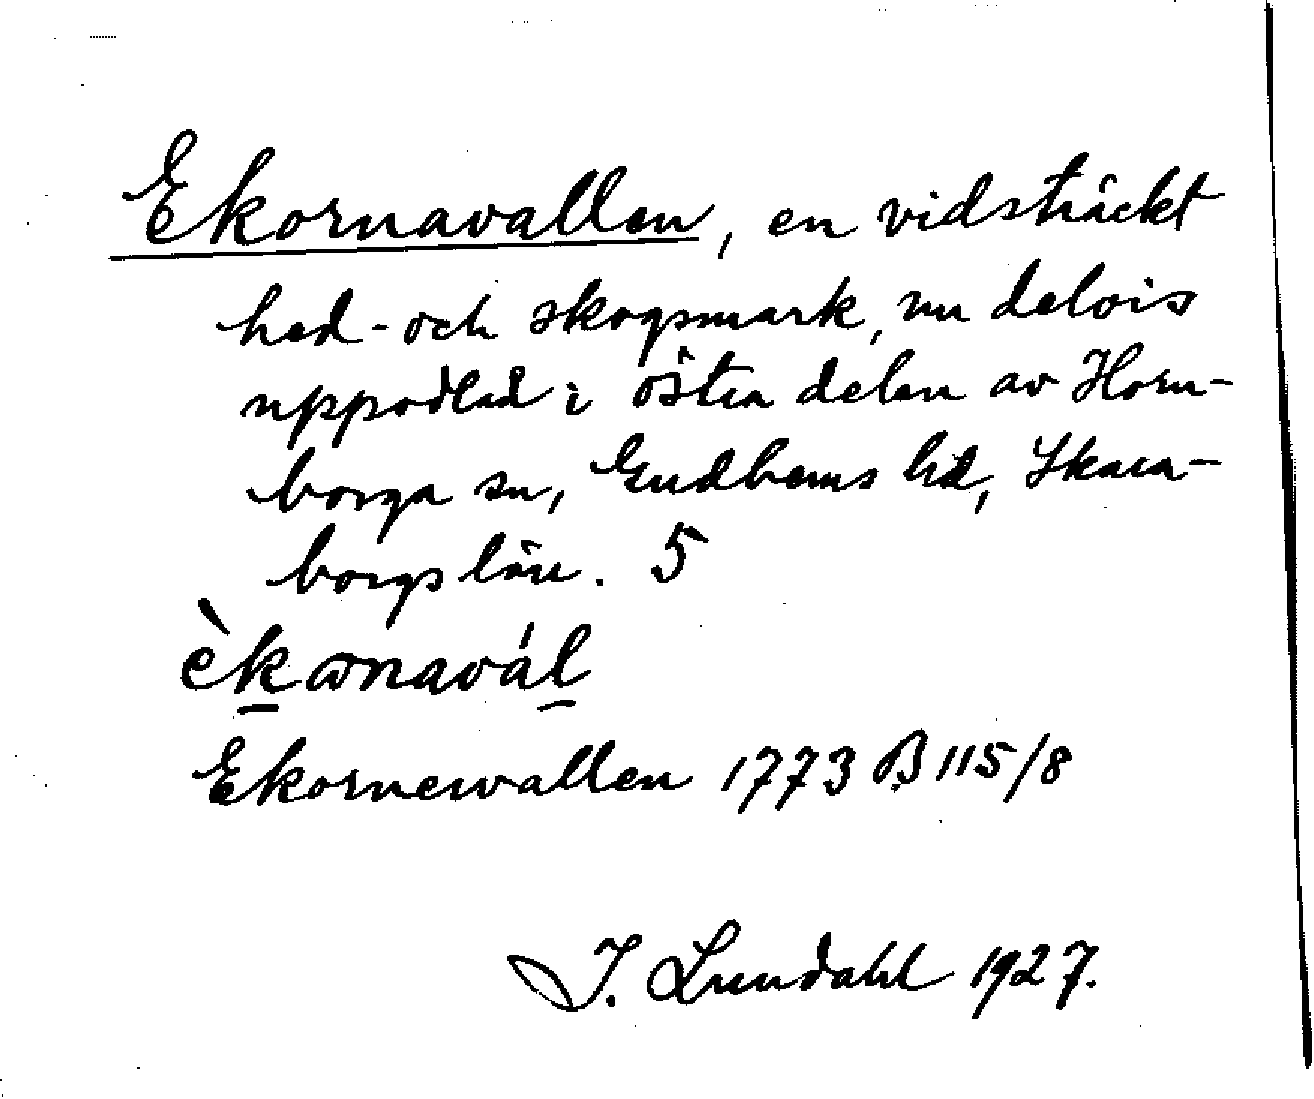 Ekornavallen, en vidsträckt
hed- och skogsmark, nu delvis
uppodlad i östra delen av Horn-
borga sn, Gudhems hd, Skara-
borgs län. 5
èkornavál
Ekornewallen 1773 B 115/8
I. Lundahl 1927.